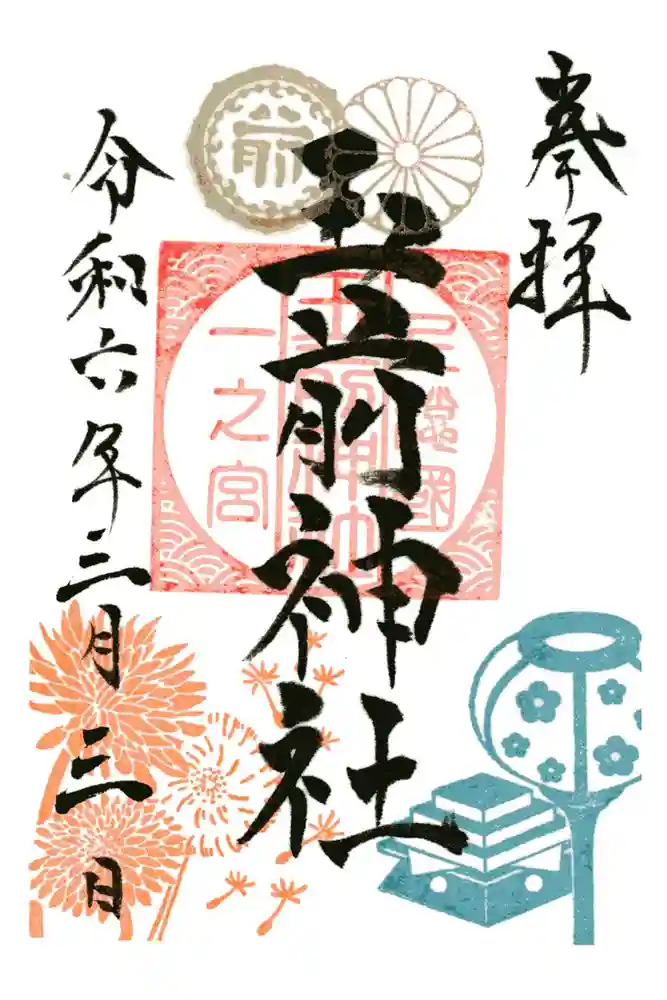 奉拝
前
玉前神社
上總國
玉前神社
一之宮
令和六年三月三日